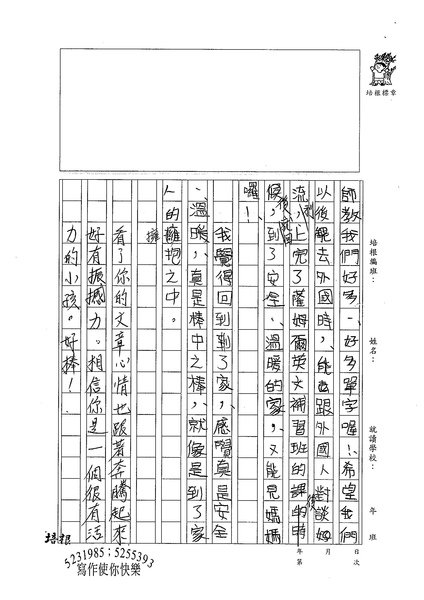 培根標章
培根編班：
姓名：
就讀學校：
年 班
年 月 日
第 次
師教我們好多、好多單字喔！希望我們
以後能去外國時，能跟外國人對談如
流，上完了薩姆爾英文補習班的課的時
候，到了安全、溫暖的家，又能見媽媽
囉！
我覺得回到家，感覺真是安全
、溫暖，真是棒中之棒，就像是到了家
人的擁抱之中。
擁
看了你的文章心情也跟著奔騰起來
好有振撼力。相信你是一個很有活
力的小孩。好棒！
培根
5231985；5255393
寫作使你快樂